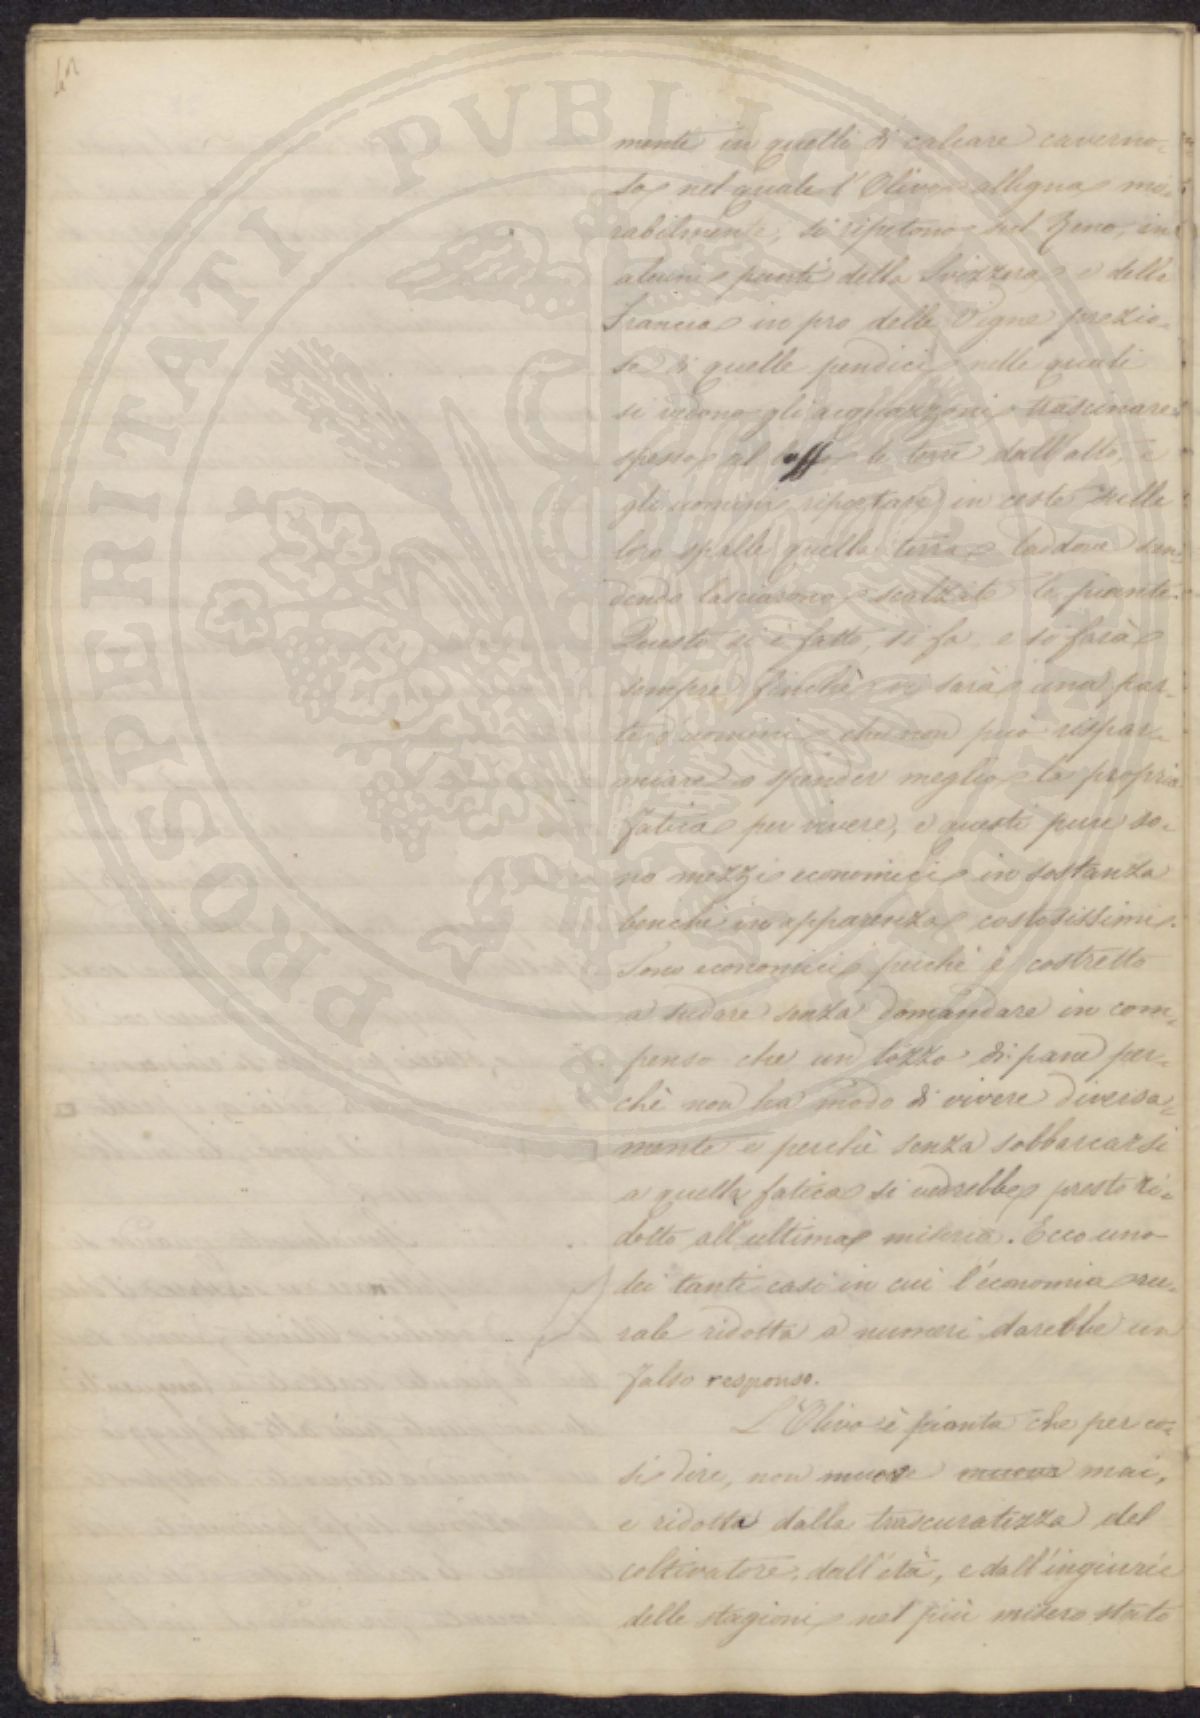 mente in quelli di calcare caverno-
so, nel quale l'Olivo alligna mi-
rabilmente, si ripetono sul Reno, in
alcuni punti della Svizzera e della
Francia in pro delle Vigne prezio-
se di quelle pendici, nelle quali
si vedono gli acquazzoni trascinare
spesso al le terre dall'alto, e
gli uomini riportare in ceste sulle
loro spalle quella terra laddove scen-
dendo lasciarono scalzate le piante.
Questo si è fatto, si fa, e si farà
sempre finchè vi sarà una par-
te d'uomini che non può rispar-
miare o spender meglio la propria
fatica per vivere, e questi pure so-
no mezzi economici in sostanza
benchè in apparenza costosissimi.
Sono economici perchè è costretto
a sudare senza domandare in com-
penso che un tozzo di pane per-
chè non ha modo di vivere diversa-
mente e perchè senza sobbarcarsi
a quella fatica si vedrebbe presto ri-
dotto all'ultima miseria. Ecco uno
dei tanti casi in cui l'economia ru-
rale ridotta a numeri darebbe un
falso responso.
L'Olivo è pianta che per co-
si dire, non muore mai,
e ridotta dalla trascuratezza del
coltivatore, dall'età, e dall'ingiurie
delle stagioni nel più misero stato
PROSPERITATI PUBLICAE